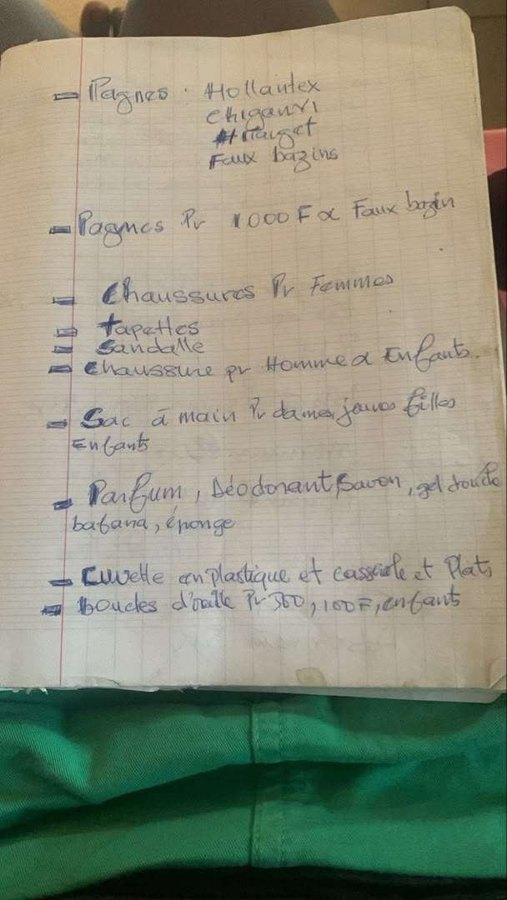 - Pagnes : Hollantex
chiganvi
Target
Faux bazins
- Pagnes Pr 1000 F & Faux bazin
- Chaussures Pr Femmes
- Tapettes
- Sandalle
- chaussure pr Homme & Enfants.
- Sac à main Pr dames, jeunes filles
Enfants
- Parfum, Déodorant, Savon, gel douche
bafana, éponge
- Cuvette en plastique et casserole et Plats
- boucles d'oreille Pr 300, 100F, enfants